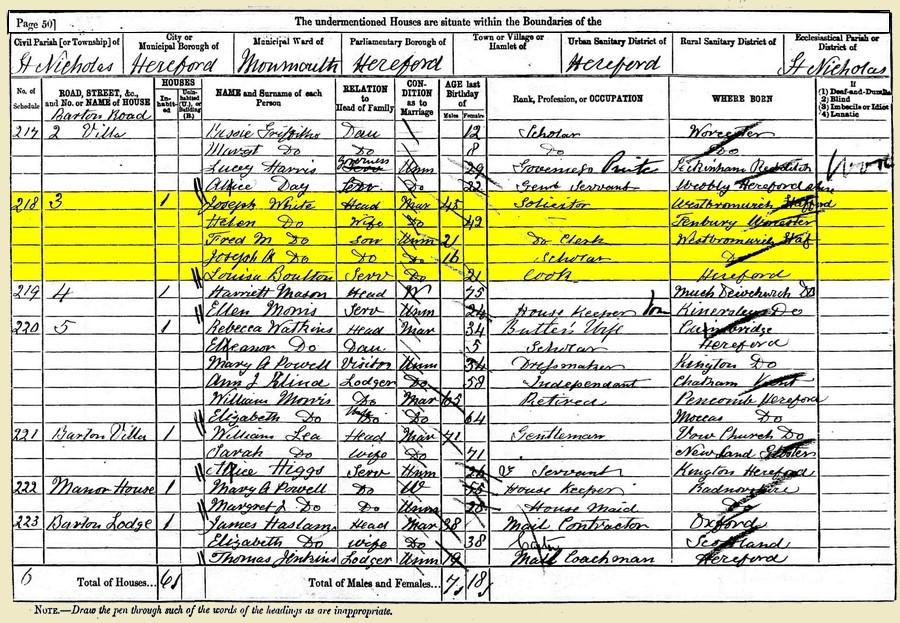 Page 50] The undermentioned Houses are situate within the Boundaries of the
Civil Parish [or Township] of City or Municipal Borough of Municipal Ward of Parliamentary Borough of Town or Village or Hamlet of Urban Sanitary District of Rural Sanitary District of Ecclesiastical Parish or District of
St Nicholas Hereford Monmouth Hereford Hereford St Nicholas
No. of Schedule ROAD, STREET, &c., and No. or NAME of HOUSE HOUSES Inhabited Uninhabited (U.), or Building (B.) NAME and Surname of each Person RELATION to Head of Family CONDITION as to Marriage AGE last Birthday of Males Females Rank, Profession, or OCCUPATION WHERE BORN If (1) Deaf-and-Dumb (2) Blind (3) Imbecile or Idiot (4) Lunatic
Barton Road
217 2 Villa Griffiths Dau 12 Scholar Worcester
Margt Do Do 8 Do Do
Lucy Harris Governess Serv Unm 29 Governess Feckenham Redditch
Alice Day Serv Do 22 Genl Servant Weobly Herefordshire
218 3 1 Joseph White Head Mar 45 Solicitor Westbromwich Stafford
Helen Do Wife Do 42 — Tenbury Worcester
Fred M Do Son Unm 21 Do Clerk Westbromwich Staf
Joseph A Do Do Do 16 Scholar Do
Louisa Boulton Serv Do 21 Cook Hereford
219 4 1 Harriett Mason Head W 75 Much Dewchurch Do
Ellen Morris Serv Unm 24 House Keeper Kinersley Do
220 5 1 Rebecca Watkins Head Mar 34 Butler's Wife Cambridge
Eleanor Do Dau 5 Scholar Hereford
Mary A Powell Visitor Unm 34 Dressmaker Kington Do
Ann J Blind Lodger Do 58 Independant Chatham Kent
William Morris Do Mar 65 Retired Pencomb Hereford
Elizabeth Do Wife Do Do 64 Moccas Do
221 Barton Villa 1 William Lea Head Mar 71 Gentleman Vow Church Do
Sarah Do Wife Do 71 Newland Gloster
Alice Higgs Serv Unm 26 Servant Kington Hereford
222 Manor House 1 Mary A Powell Do W 55 House Keeper Radnorshire
Margret J Do Do Unm 28 House Maid Do
223 Barton Lodge 1 James Haslam Head Mar 38 Mail Contractor Oxford
Elizabeth Do Wife Do 38 Scotland
Thomas Jenkins Lodger Unm 19 Mail Coachman Hereford
6 Total of Houses... 6 Total of Males and Females... 7 18
NOTE.—Draw the pen through such of the words of the headings as are inappropriate.